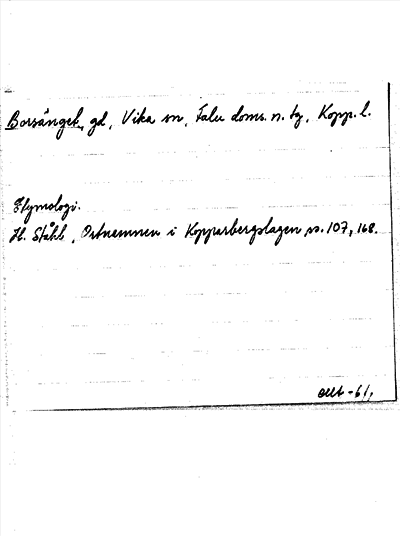 Borsängek, gd, Vika sn, Falu doms. n. tg, Kopp. l.
Etymologi.
H. Ståhl, Ortnamnen i Kopparbergslagen, s. 107, 168.
-61,